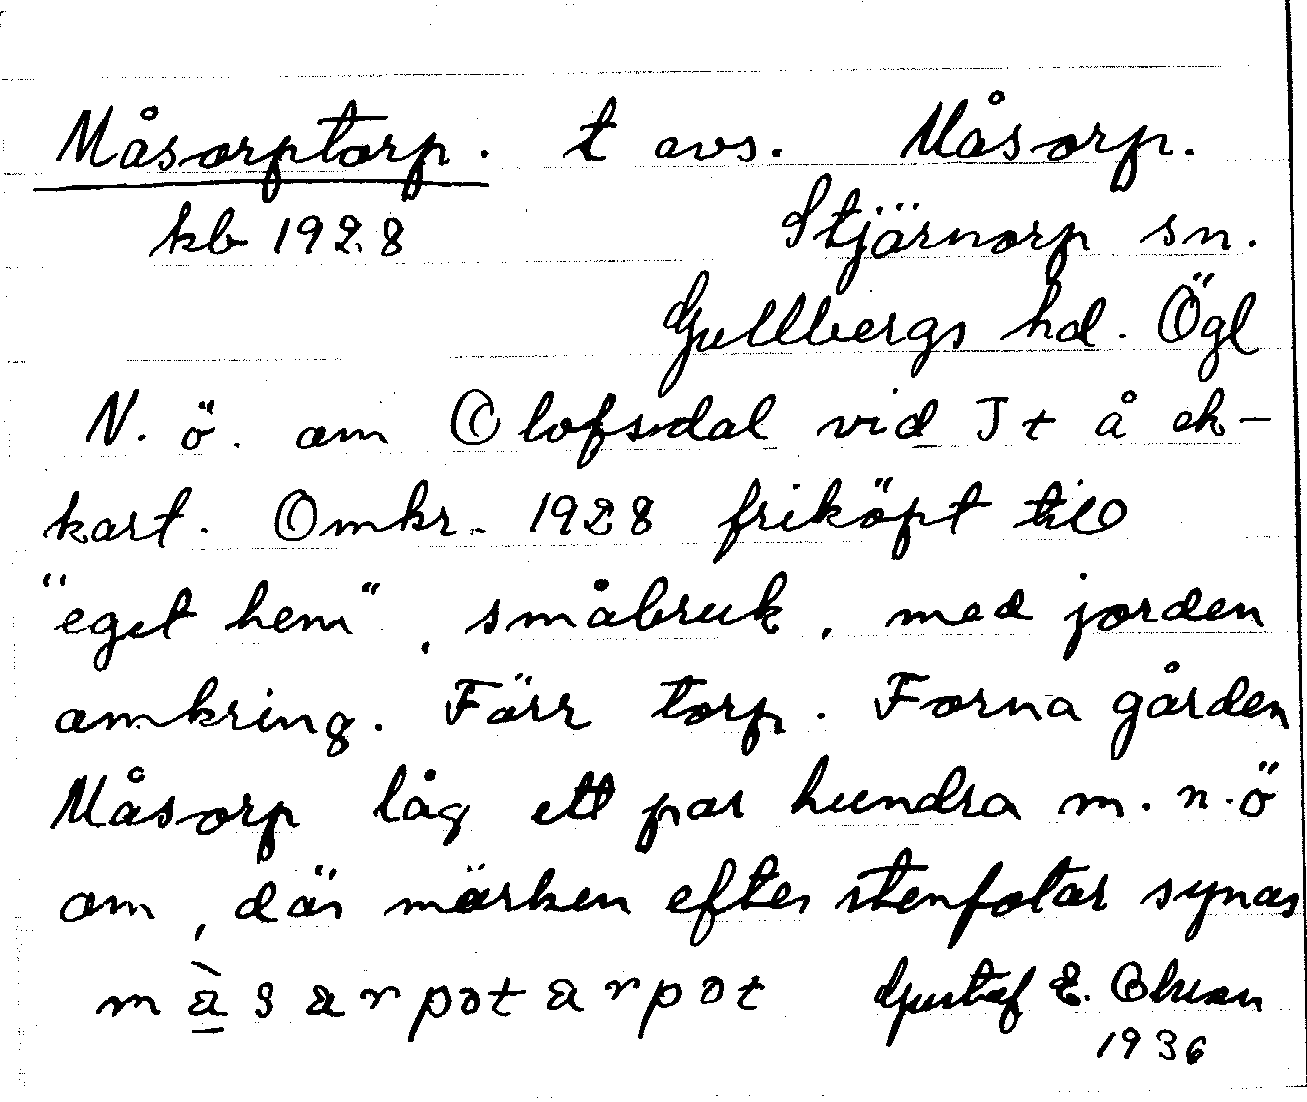 Måsorptorp. t avs. Måsorp.
kb 1928 Stjärnorp sn.
Gullbergs hd. Ögl
N. ö. om Olofsdal vid J + å ek-
kart. Omkr. 1928 friköpt till
"eget hem", småbruk, med jorden
omkring. Förr torp. Forna gården
Måsorp låg ett par hundra m. n.ö
om, där märken efter stenfotar synas
Gustaf E. Olsson
1936